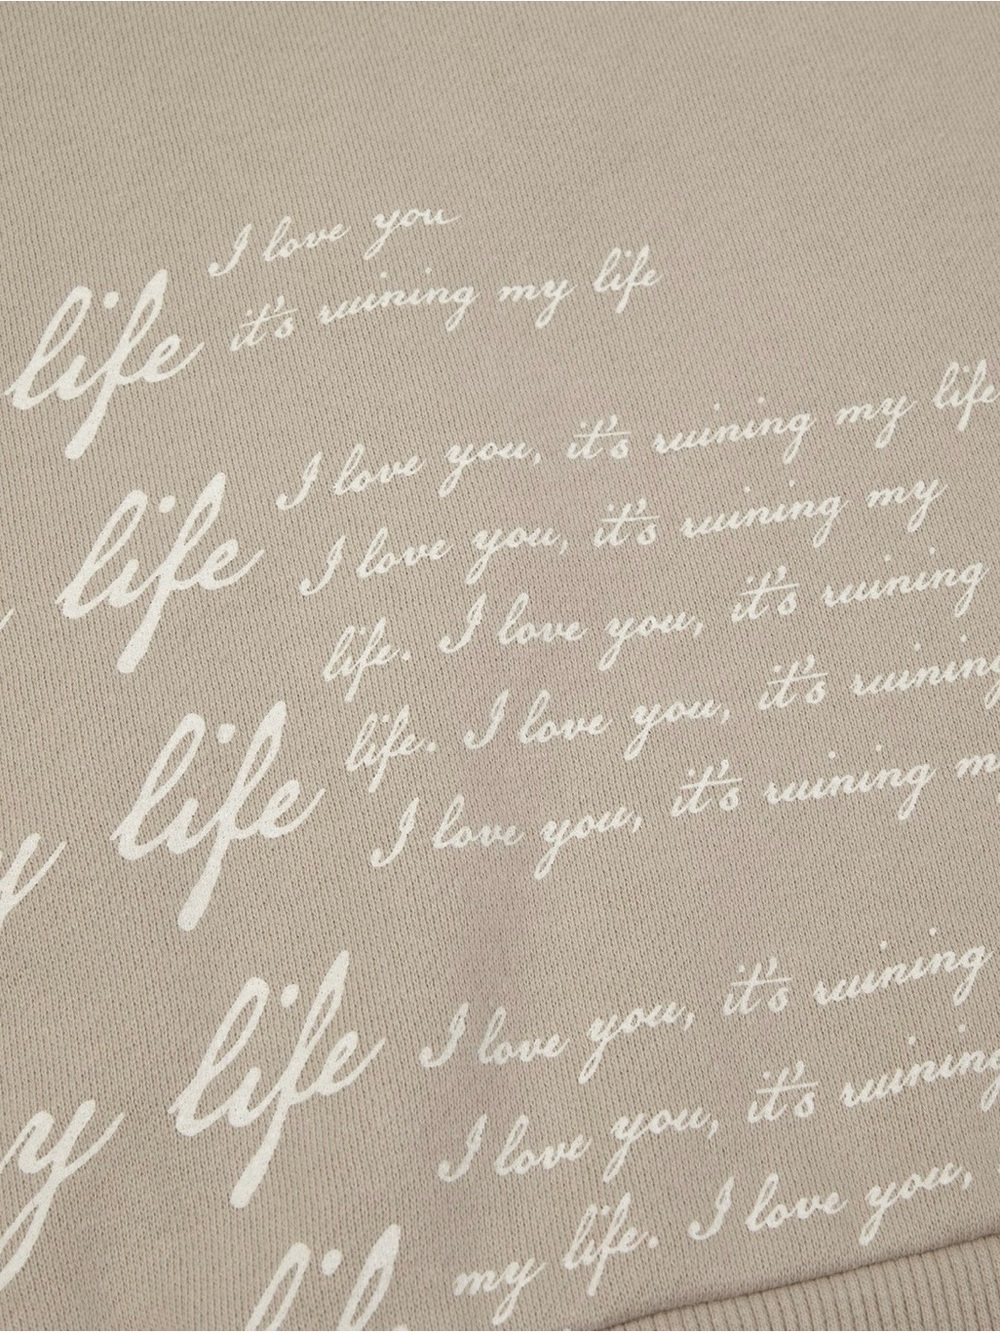 I love you
life it's ruining my life
I love you, it's ruining my life
life I love you, it's ruining my
life. I love you, it's ruining
life life. I love you, it's ruining
I love you, it's ruining
life I love you, it's ruining
y I love you, it's ruining
life my life. I love you,